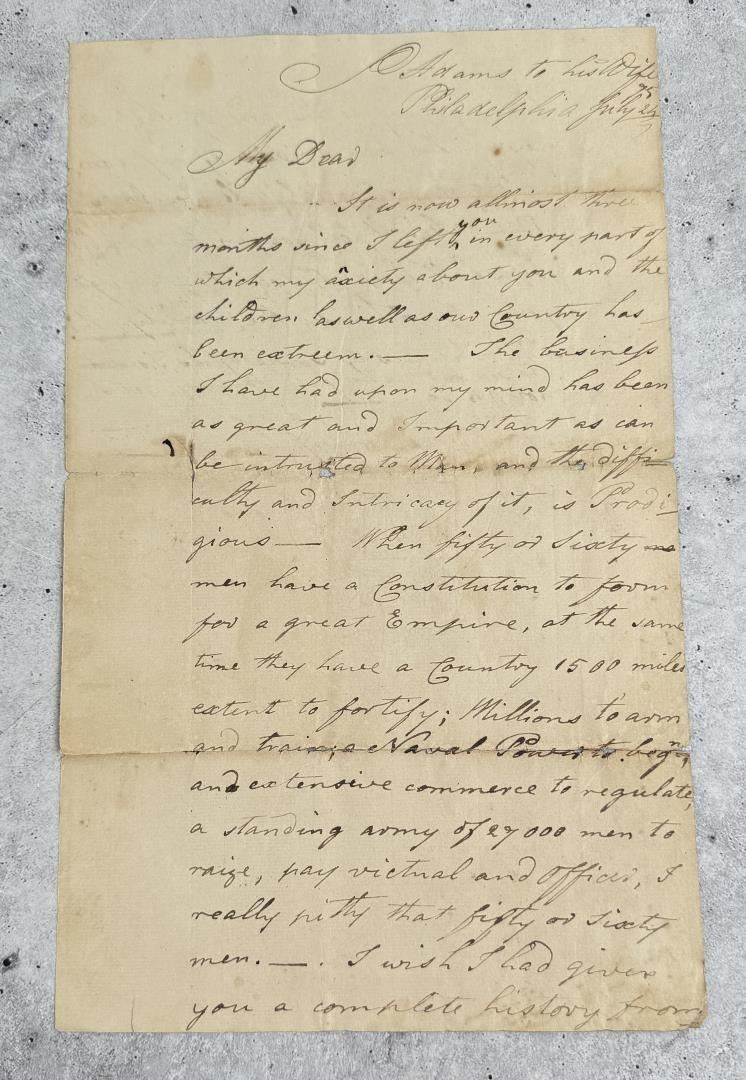 J Adams to his Wife
Philadelphia July 24 75
My Dear
It is now allmost three
months since I left you in every part of
which my axiety about you and the
children as well as our Country has
been extreem. — The business
I have had upon my mind has been
as great and Important as can
be intrusted to Man, and the diffi-
culty and Intricacy of it, is Prodi-
gious — When fifty or Sixty
men have a Constitution to form
for a great Empire, at the same
time they have a Country 1500 miles
extent to fortify; Millions to arm
and train; a Naval Power to begn,
and extensive commerce to regulate,
a standing army of 27000 men to
raize, pay victual and officer, I
really pitty that fifty or Sixty
men. — . I wish I had given
you a complete history from